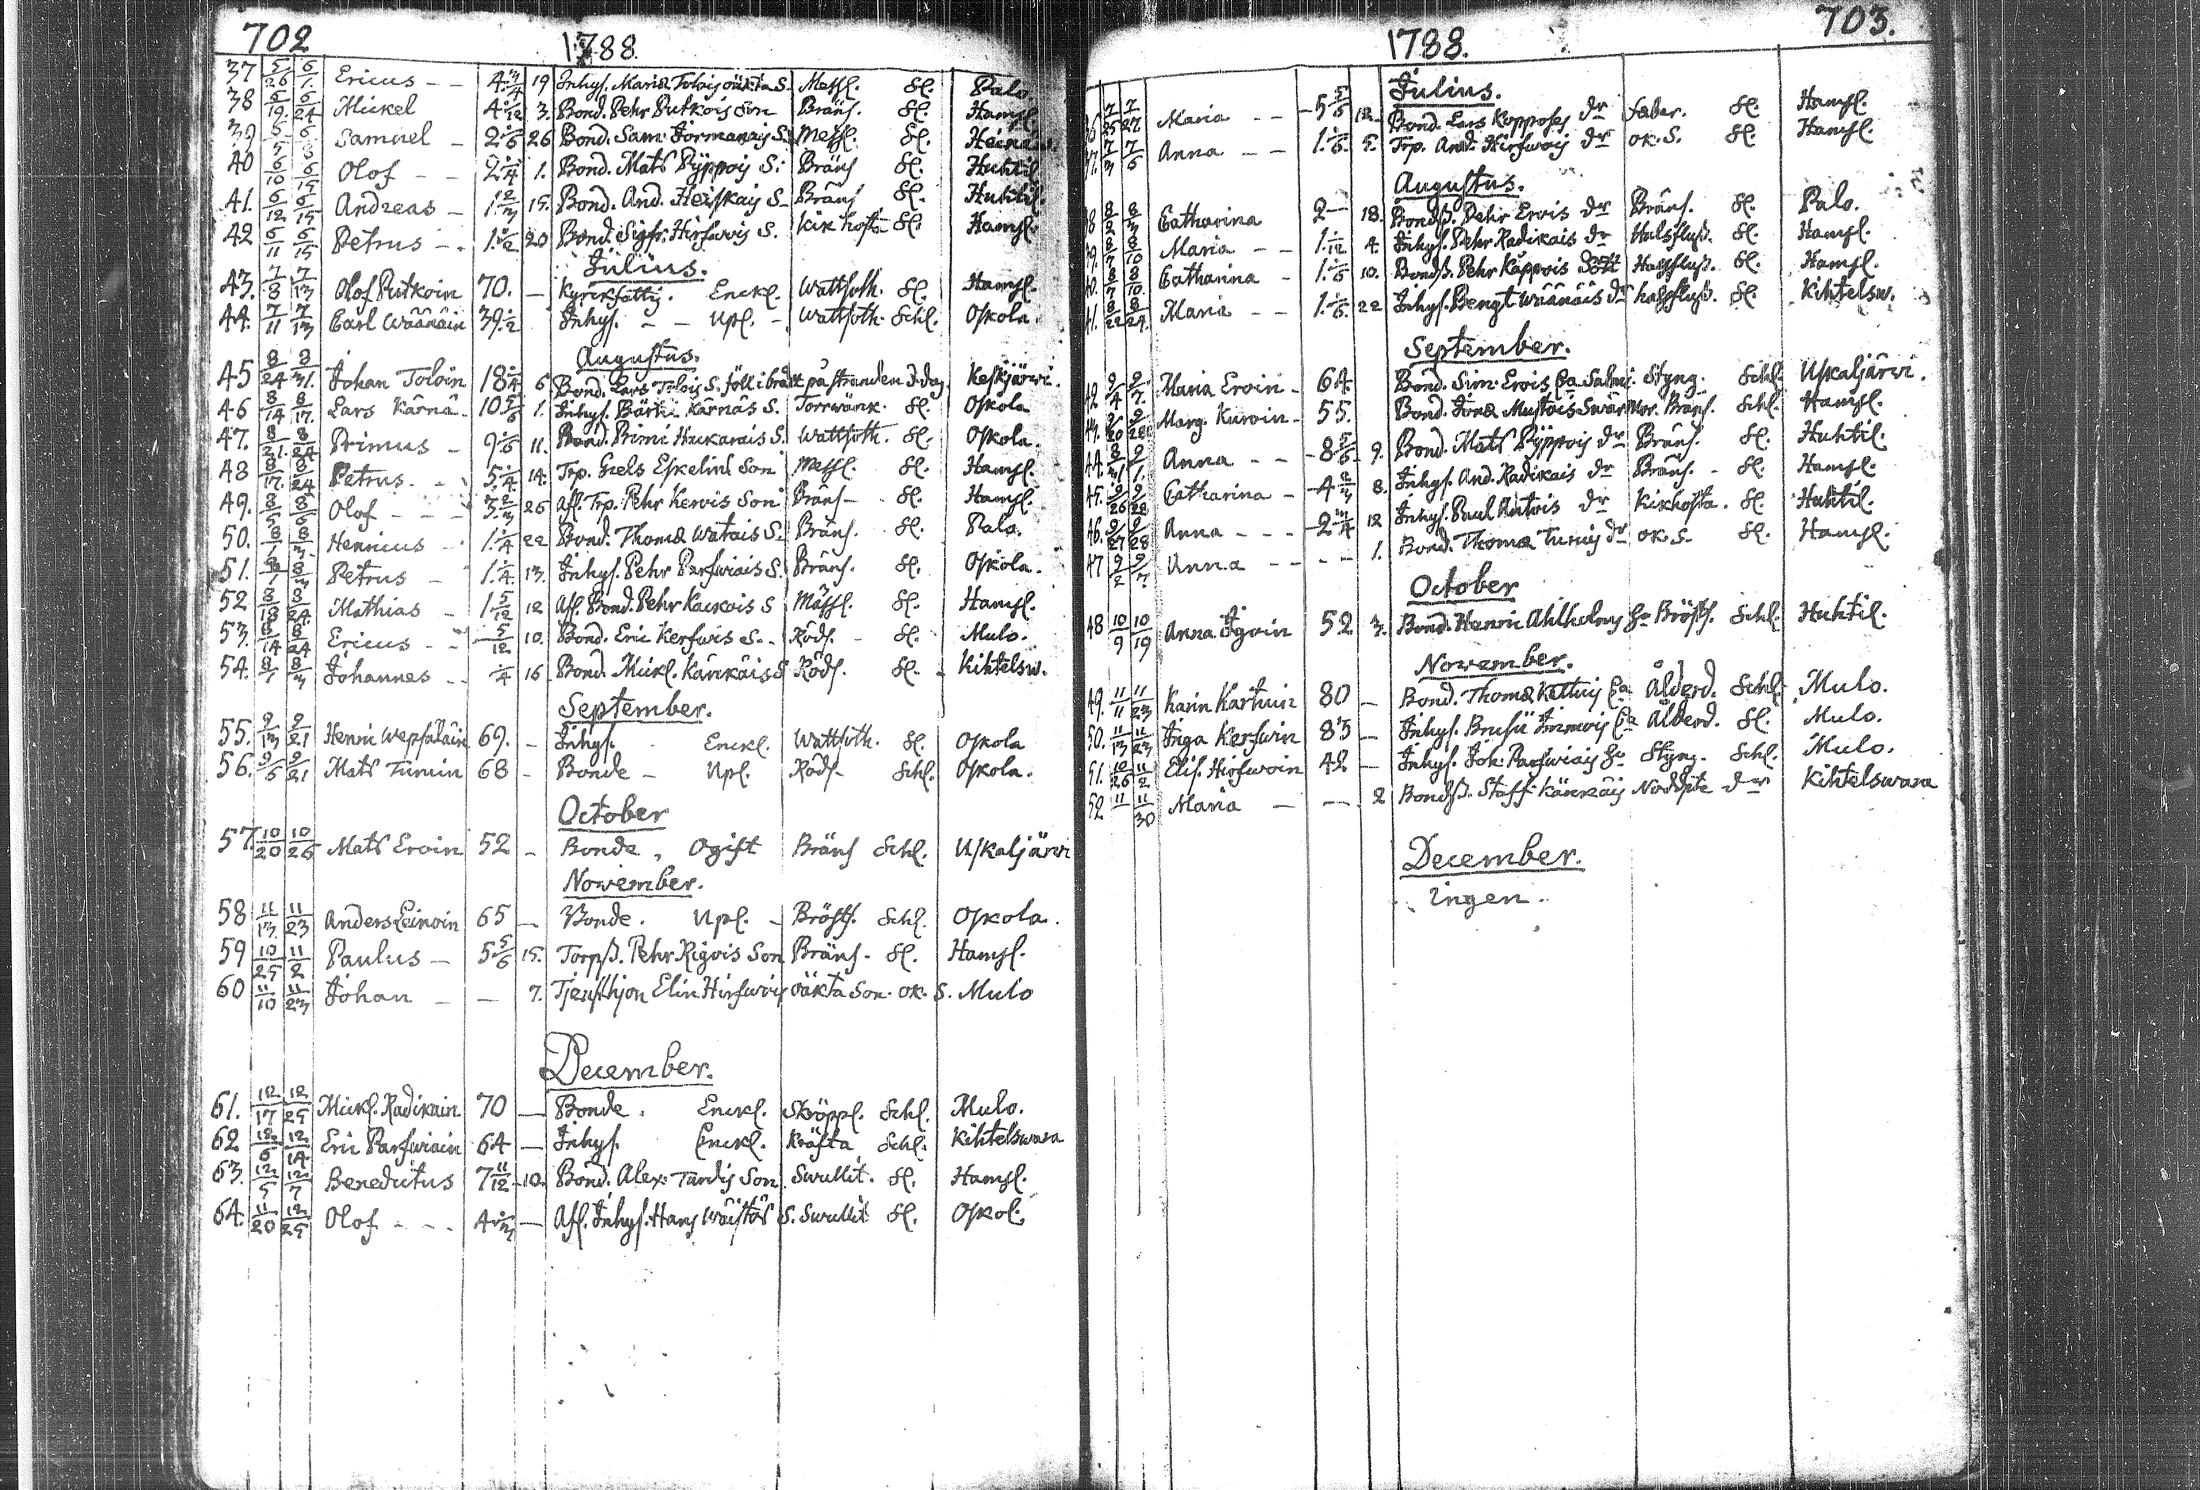 702
1788.
37 5/26 6/1. Ericus - - 4 3/4 19 Inhys. Maria Tolois oäkta S. Messl. Sl. Palo
38 6/19. 6/24 Mickel 4 1/12 3. Bond. Pehr Putkois Son Bräns. Sl. Hamsl.
39 Samuel - 2 1/6 26 Bond. Sam: Jormanais S. Messl. Sl. Heinaw.
40 6/10 6/15 Olof - - 2 1/4 1. Bond. Mats Pÿppois S: Bräns Sl. Huhtil.
41. 6/12 6/15 Andreas - 1 2/3 15. Bond. And. Heiskais S. Bräns Sl. Huhtil.
42 6/11 6/15 Petrus - . 1. 1/12 20 Bond. Sigfr. Hirfwois S. Kikhosta Sl. Hamsl.
Julius.
43. 7/8 7/13 Olof Putkoin 70. - Kyrckfattig. Enckl. Wattsoth. Sl. Hamsl.
44. 7/11 7/13 Carl Wäänäin 39 1/2 Inhys. - - Upl. - Wattsoth. Schl. Oskola.
Augustus.
45 8/24 8/31. Johan Toloin 18 1/4 6 Bond. Lars Tolois S. föll i brått på stranden 3 dag Keskjärwi.
46 8/14 8/17. Lars Kärnä - 10 5/6 1. Inhys. Bärti Kärnäs S. Torrwärck. Sl. Oskola
47. 8/21. 8/24 Primus - 9 1/6 11. Bond. Primi Huckarais S. Wattsoth. Sl. Oskola.
48 8/17. 8/24 Petrus. - . 5 1/4 14. Trp. Giels Eskelins Son Messl. Sl. Hamsl.
49. 8/5 8/6 Olof - - - 3 2/3 26 Afl. Trp. Pehr Kerois Son Bräns - Sl. Hamsl.
50. 8/1 8/3. Henricus - . 1. 1/4 22 Bond. Thomæ Watais S. Bräns. Sl. Palo.
51. 8/1 8/3 Petrus - 1. 1/4. 13. Inhys. Pehr Parfwiais S. Bräns. Sl. Oskola.
52 8/18 8/24. Mathias - 1 5/12 12 Afl. Bond. Pehr Kackois S Mässl. Sl. Hamsl.
53. 8/14 8/24 Ericus - - 5/12 10. Bond. Eric Kerfwis S. - Röds. - Sl. Mulo.
54. 8/1 8/3 Johannes - . 1/4 16 Bond. Mickl. Känkäis S Röds. Sl. - Kihtelsw.
September.
55. 9/13 9/21 Henric Wepsäläin 69. - Inhys. Enckl. Wattsoth. Sl. Oskola
56. 9/6 9/21 Mats Turuin 68 - Bonde - Upl. Röds - Schl. Oskola.
October
57. 10/20 10/26 Mats Eroin 52 - Bonde . Ogift Bräns Schl. Uskaljärwi
November.
58 11/13. 11/23 Anders Leinoin 65 - Bonde. Upl. - Bröstf. Schl. Oskola.
59 10/25 11/2 Paulus - 5 5/6 15. Torpß. Pehr Rigois Son Bräns. Sl. Hamsl.
60 11/10 11/23 Johan - - 7. Tjensthjon Elin Hirfwois oäkta Son. ok. S. Mulo
December.
61. 12/17 12/25 Mickl. Radikain 70 - Bonde. Enckl. Skröppl. Schl. Mulo.
62 12/6 12/14 Eric Parfwiain 64 - Inhys. Enckl. Kräfta Schl. Kihtelswara
63. 12/5 12/7 Benedictus 7 11/12 10. Bond. Alex. Turdis Son Swullit. Sl. Hamsl.
64. 11/20 12/25 Olof - - . 4 1/3 - Afl. Inhys. Hans Wäistös S. Swullit Sl. Oskol.
703.
1788.
Julius.
7/25 7/27 Maria - - 5 5/6 12. Bond. Lars Kopposes dr feber. Sl. Hamsl.
7/3 7/6 Anna - - 1. 1/6. 5. Trp. And. Hirfwois dr ok. S. Sl. Hamsl.
Augustus.
8/2 8/3 Catharina 2 - 18. Bondß. Pehr Erois dr Bräns. Sl. Palo.
8/7 8/10 Maria - - 1. 1/12 4. Inhys. Pehr Radikais dr Halsfluß. Sl. Hamsl.
40. 8/7 8/10. Catharina - 1. 1/6 10. Bondß. Pehr Käppois dott Halsfluß. Sl. Hamsl.
41. 8/22 8/24. Maria - - 1. 1/6. 22 Inhys. Bengt Wäänäis dr halsfluß. Sl. Kihtelsw.
September.
42 9/4 9/7. Maria Eroin - 64. Bond. Sim: Erois Ea Salmi. Styng. Schl. Uskaljärwi.
43. 9/20 9/28. Marg. Kuroin - 55. Bond. Jonæ Mustois Swärmor. Bräns. Schl. Hamsl.
44. 8/31 9/1. Anna - - 8 5/6 9. Bond. Mats Pÿppois dr Bräns. Sl. Huhtil.
45. 9/26 9/28 Catharina - 4 2/3 8. Inhys. And. Radikais dr Bräns. - Sl. Hamsl.
46. 9/27 9/28 Anna - - - 2 3/4 12 Inhys. Paul Antois dr Kikhosta. Sl. Huhtil.
47 9/2 9/7. Anna - - - - 1. Bond. Thomæ Turuis dr ok. S. Sl. Hamsl.
October
48 10/9 10/19 Anna Igoin 52 3. Bond. Henric Ahlholms Hu Bröstf. Schl. Huhtil.
November.
49. 11/11 11/23 Karin Karhuin 80 - Bond. Thomæ Kettuis Ea Ålderd. Schl. Mulo.
50. 11/13 11/23 Inga Kerfwin 83 - Inhys. Brusii Immois Ea Ålderd. Sl. Mulo.
51. 10/26 11/2 Elis. Hirfwoin 42 - Inhys. Joh. Parfwiais Hu Styng. Schl. Mulo.
52 11 11/30 Maria - - - . 2 Bondß. Staff. Känkäis Nöddöpte dr Kihtelswara
December.
ingen.